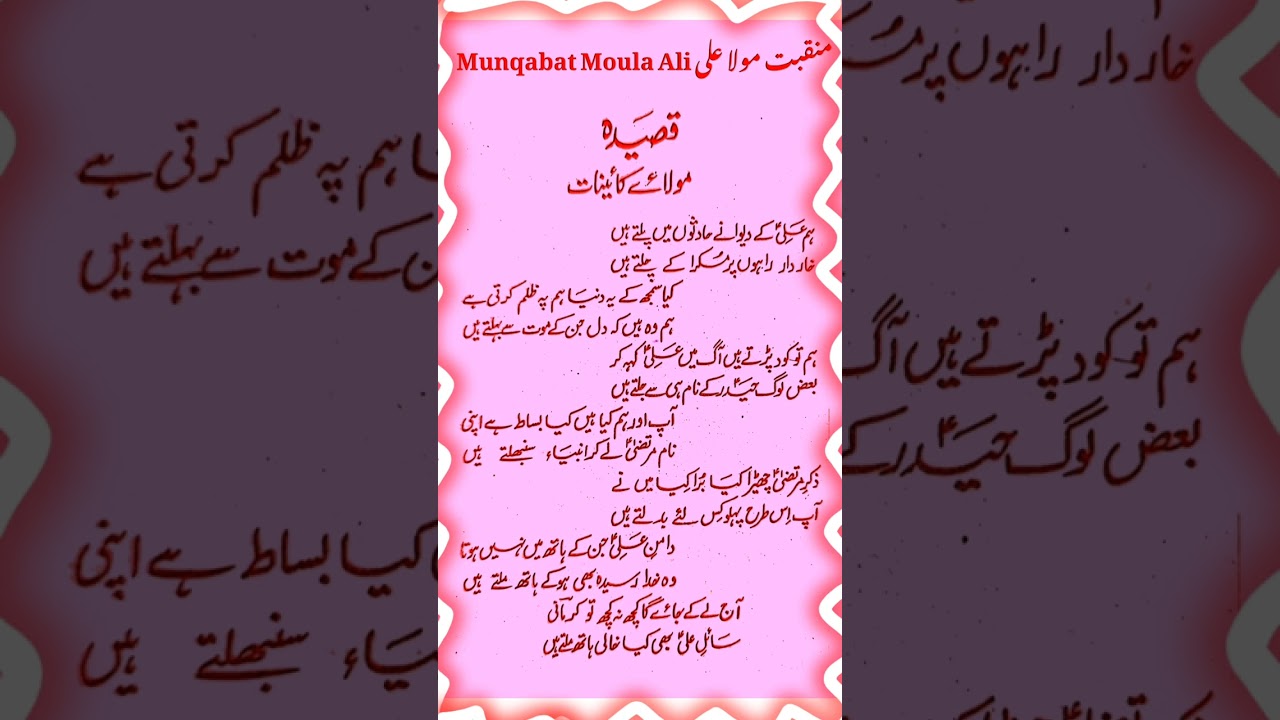 منقبت مولا علی Munqabat Moula Ali
قصیدہ
مولائے کائینات
ہم علیؑ کے دیوانے حادثوں میں پلتے ہیں
خار دار راہوں پر مُسکرا کے چلتے ہیں
کیا سمجھ کے یہ دنیا ہم پہ ظلم کرتی ہے
ہم وہ ہیں کہ دل جن کے موت سے بہلتے ہیں
ہم تو کود پڑتے ہیں آگ میں علیؑ کہہ کر
بعض لوگ حیدرؑ کے نام ہی سے جلتے ہیں
آپ اور ہم کیا ہیں کیا بساط ہے اپنی
نام مرتضیٰؑ لے کر انبیاء سنبھلتے ہیں
ذکرِ مرتضیٰؑ چھیڑا کیا بُرا کیا میں نے
آپ اِس طرح پہلو کس لئے بدلتے ہیں
دامنِ علیؑ جن کے ہاتھ میں نہیں ہوتا
وہ خدا رسیدہ بھی ہو کے ہاتھ ملتے ہیں
آج لے کے جائے گا کچھ نہ کچھ تو کرمانی
سائلِ علیؑ بھی کیا خالی ہاتھ ملتے ہیں
خار دار راہوں پر مُس
ا ہم پہ ظلم کرتی ہے
ن کے موت سے بہلتے ہیں
ہم تو کود پڑتے ہیں آگ
بعض لوگ حیدرؑ کے
کیا بساط ہے اپنی
یاء سنبھلتے ہیں